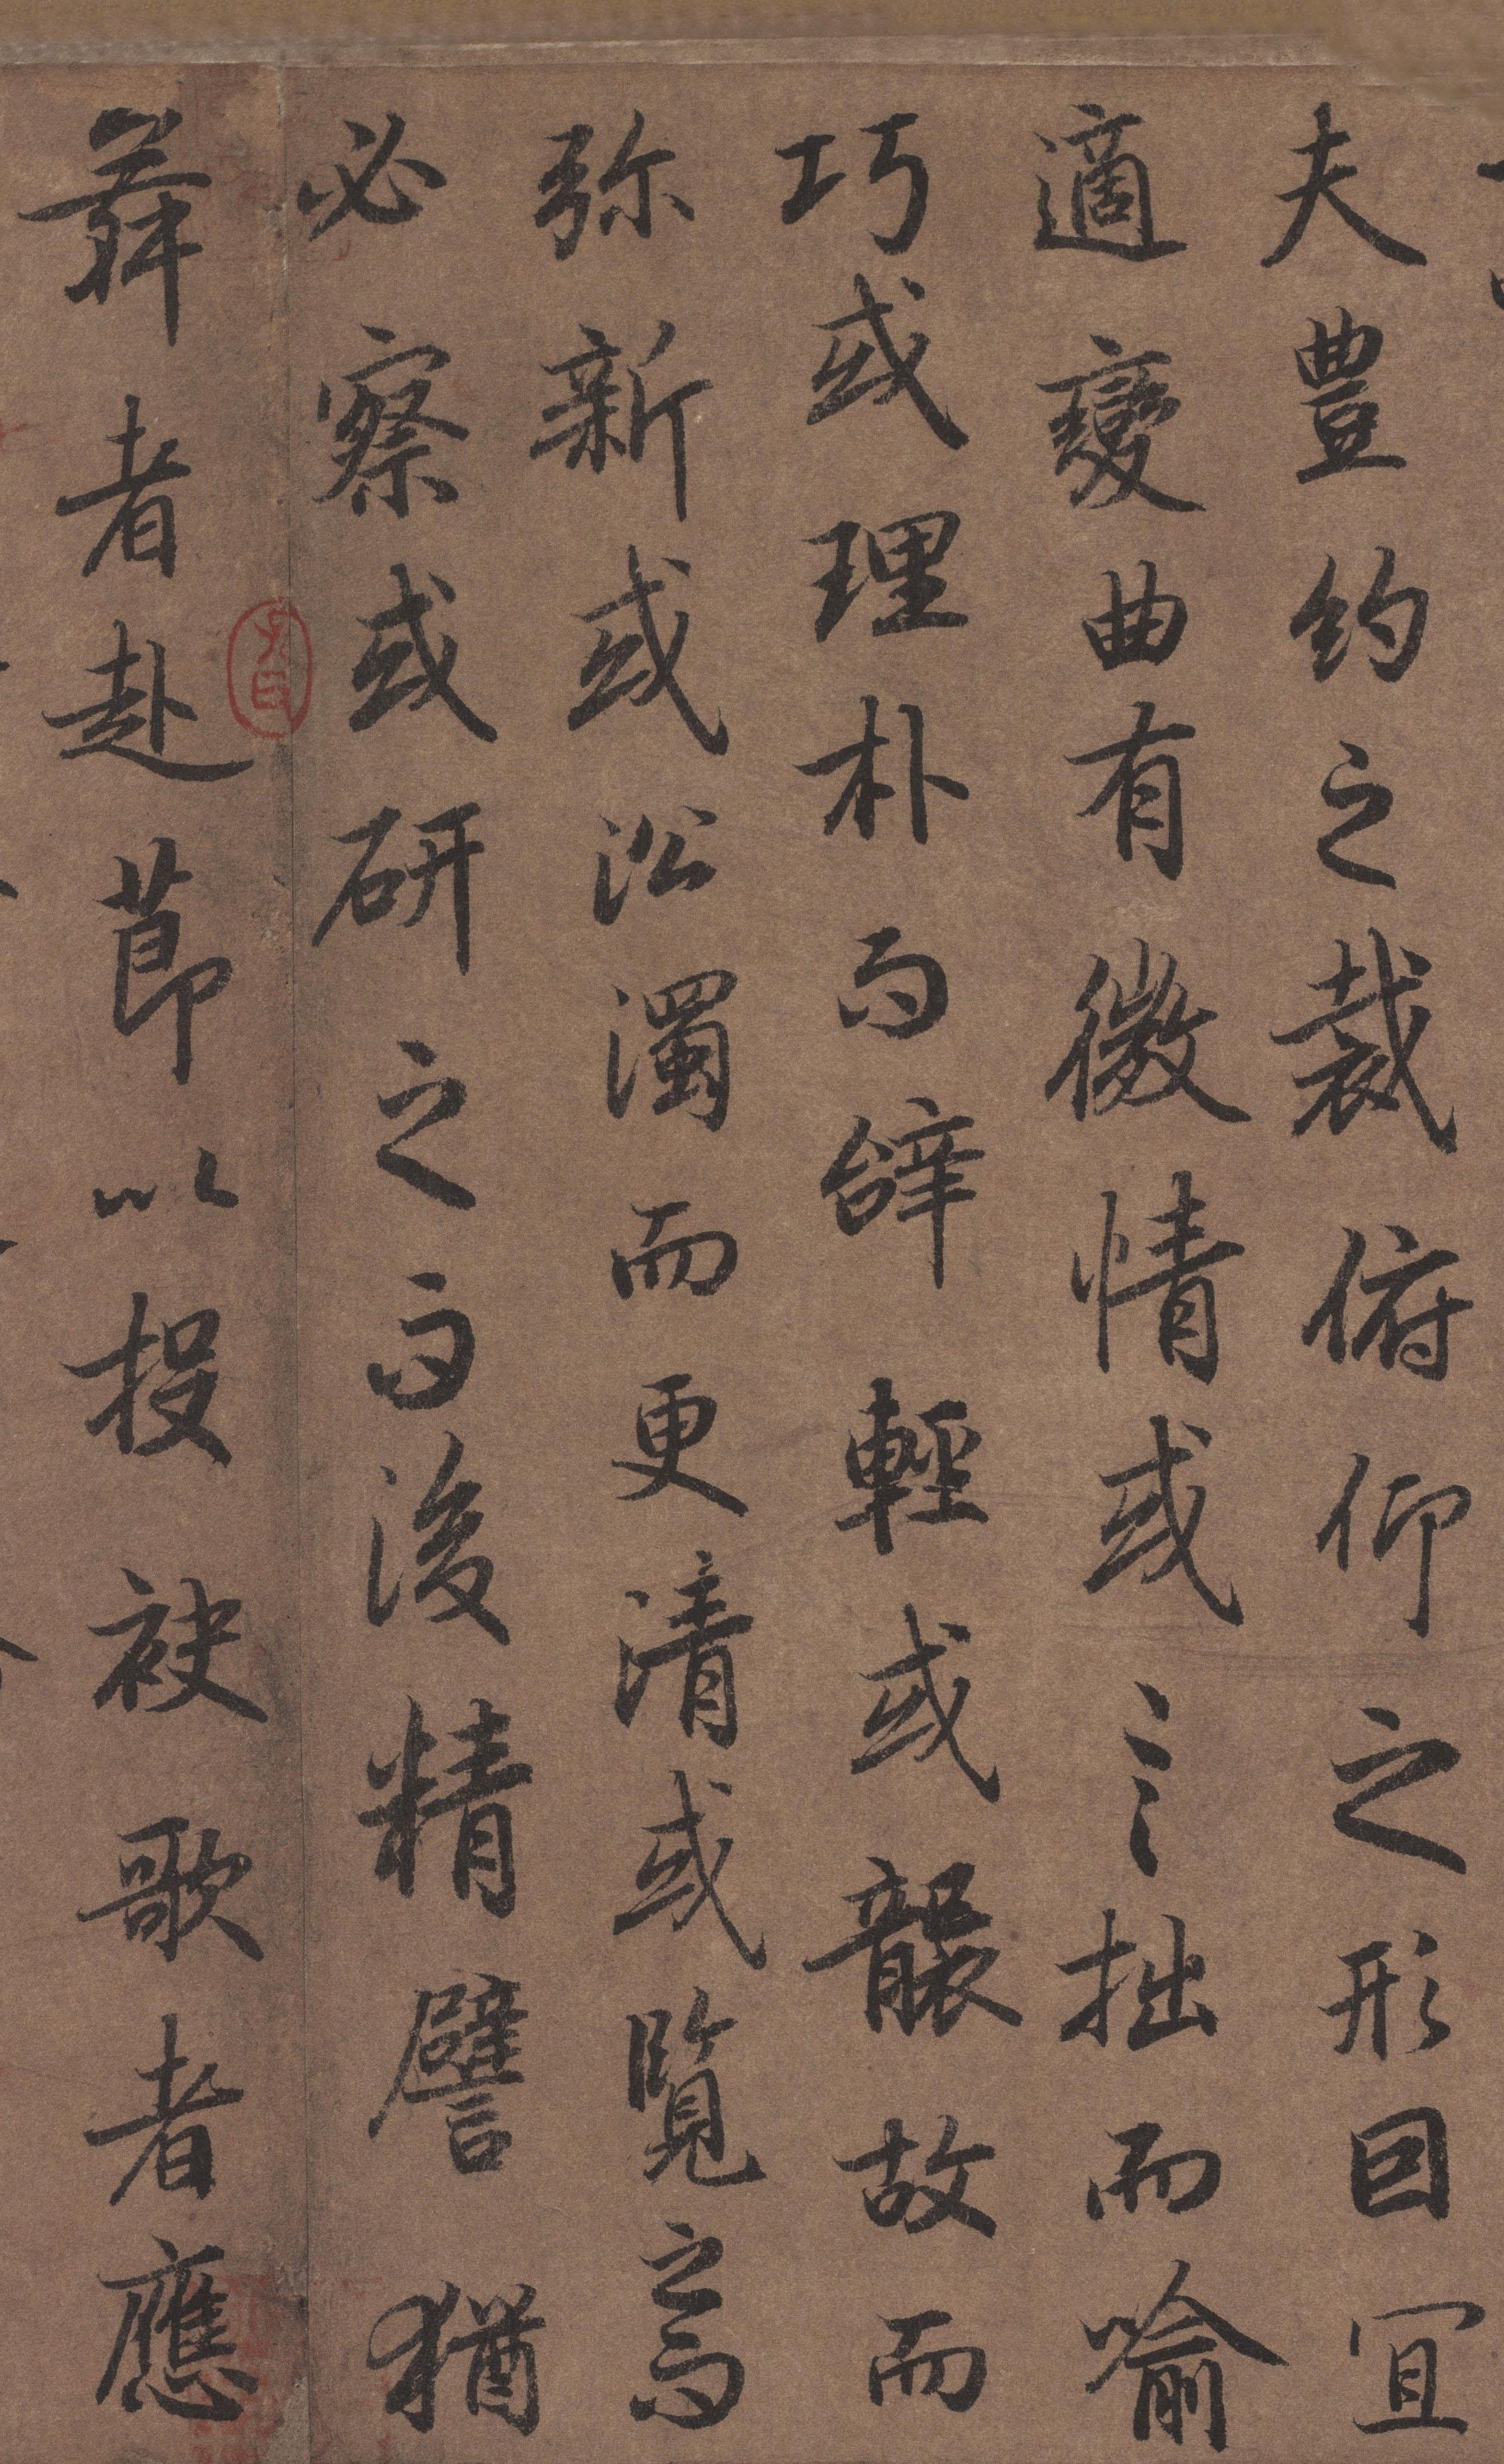 夫豊約之裁俯仰之形囙冝
適變曲有微情或言拙而喻
巧或理朴而辝輕或襲故而
弥新或㳂濁而更清或覽之而
必察或研之而後精譬猶
舞者赴莭以投袂歌者應